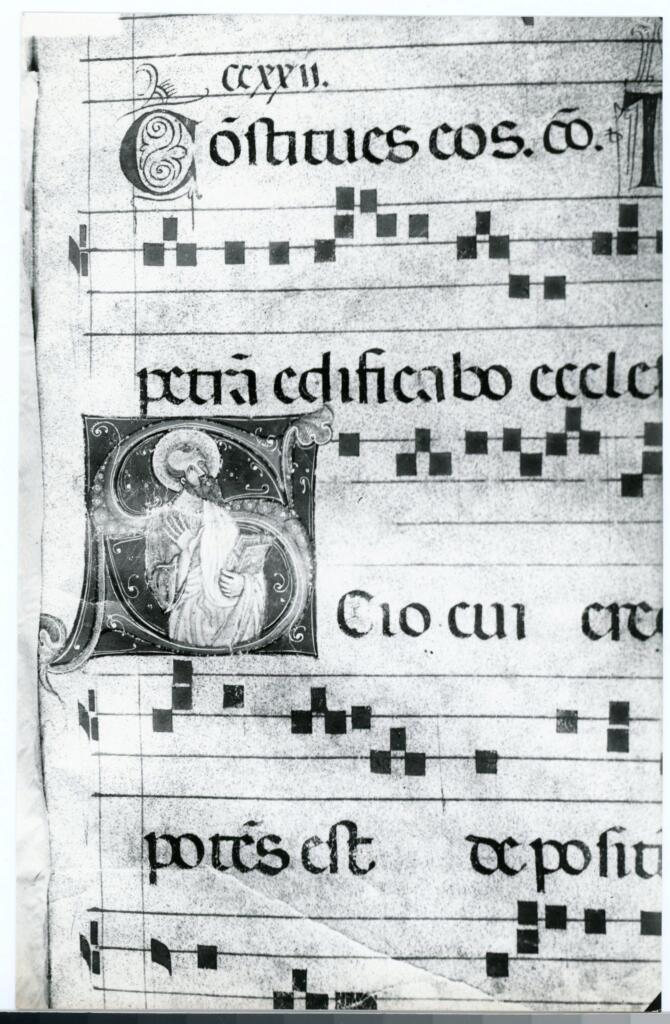 ccxxii.
Cõstitues eos. cõ. T
petrã edificabo eccles
Scio cui cre
potẽs est depositũ